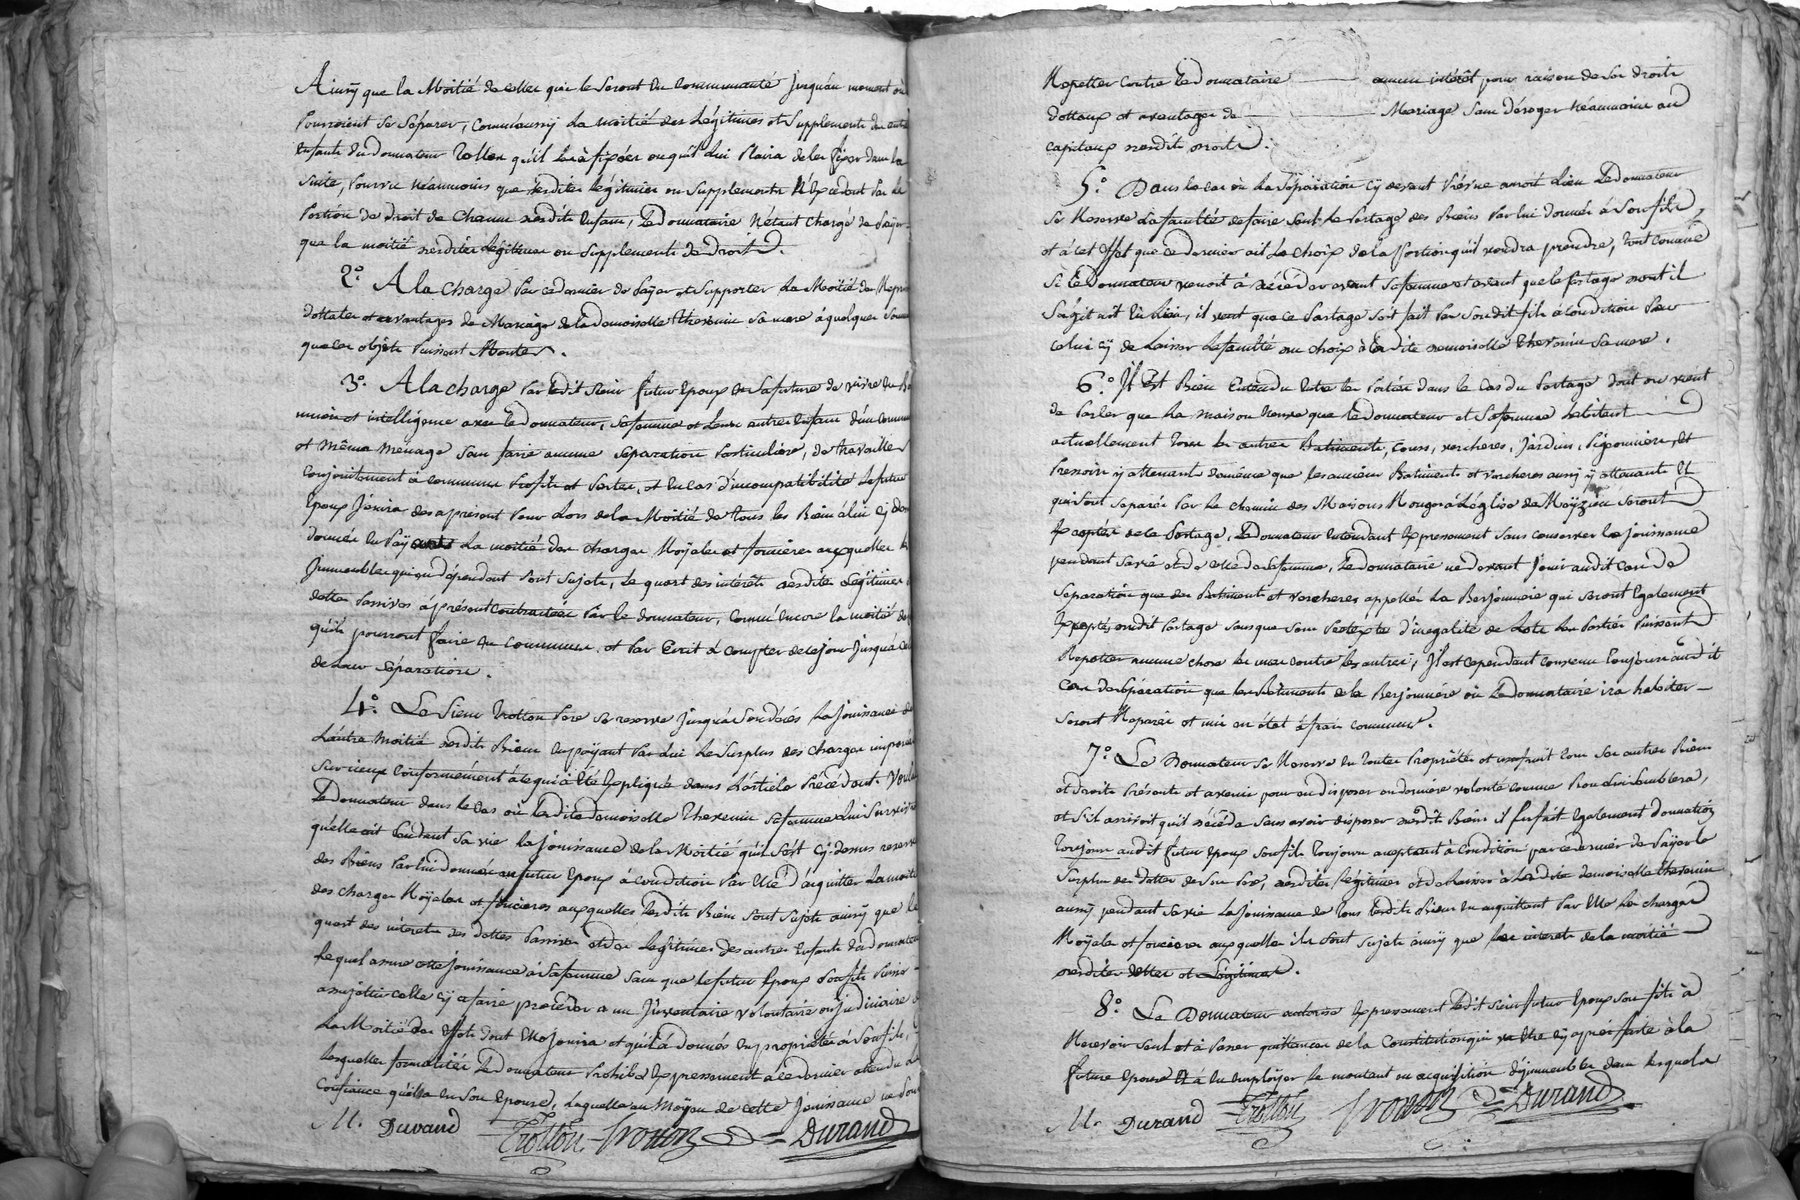 Ainsy que la Moitié de celles qui le seront en communauté Jusqu'au moment où
Pourroient se séparer, Comm'aussy La moitié des Légitimes et Supplements des autres
enfants du donnateur telles qu'il les à fixées ou qu'il lui Plaira de les fixer dans la
suite, Pourvu néanmoins que lesdites légitimes ou Supplements N'Excedent Pas la
Portion de droit de chacun desdits Enfans, Ledonnataire N'étant Chargé de Païer
que la moitié desdites Légitimes ou Supplements de Droits.
2.° A la Charge Par ce dernier de Païer et Supporter La Moitié des Reprises
dottales et avantages de Mariage de la demoiselle Thevenin sa mere à quelques sommes
que ces objets Puissent Monter.
3.° A la charge Par ledit Sieur futur Epoux et Sa future de vivre en Bonne
union et intelligence avec le donnateur, Safemme et Leurs autres Enfans d'un commun
et même ménage Sans faire aucune séparation Particulière, de travailler
Conjointement à communs Profits et Pertes, et En cas d'incompatibilité Lefutur
Epoux Jouira des a présent Pour Lors de la Moitié de tous les Biens à lui cy dessus
donnés en Païant La moitié des charges Royales et foncières auxquelles les
Immeubles qui en dépendent Sont Sujets, Le quart des intérêts desdites Légitimes
dettes Passives à présent contractées Par le donnateur, Comme encore la moitié de
qu'ils pourront faire en commun et Par Ecrit à compter de ce jour Jusqu'a celui
de leur Séparation.
4.° Le Sieur Trollon Pere se reserve jusqu'à Son décès La Jouissance de
L'autre Moitié desdits Biens en payant Par lui Le Surplus des charges imposées
Sur iceux Conformément à ce qui à Eté Expliqué dans L'article Précédent. Voulant
Le Donnateur dans le cas où Ladite demoiselle Thevenin Safemme Lui Survivroit
qu'elle ait Pendant Sa vie La Jouissance de la Moitié qu'il S'est cy-dessus reservée
des Biens Par lui donnés au futur Epoux à condition Par Elle D'acquitter La moitié
des charges Royales et foncieres auxquelles lesdits Biens Sont Sujets ainsy que le
quart des intérets des dettes Passives et des Legitimes des autres Enfants du donnateur
Lequel assure cette Jouissance à Safemme Sans que le futur Epoux Sonfils Puisse
assujettir celle cy a faire procéder a un Inventaire volontaire ou judiciaire de
La Moitié des Effets dont Elle Jouira et qu'il à donnés en propriété à Sonfils,
Lesquelles formalités Le Donnateur Prohibe Expressement à ce dernier attendu la
Confiance qu'il a en Son Epouse, Laquelle au Moyen de cette Jouissance ne Pourra
M. Durand Trollon Trollon Durand
Repetter contre Le donnataire aucun intérêt pour raison de Ses droits
dottaux et avantages de Mariage Sans déroger néanmoins au
Capitaux desdits droits.
5.° Dans le cas où La Séparation cy devant Prévue auroit Lieu Le Donnateur
Se Reserve Lafaculté de faire Seul Le Partage des Biens Par lui donnés à Sonfils
et à cet Effet que ce dernier ait Le choix de la Portion qu'il voudra prendre, tout comme
Si Le Donnateur venoit à décéder avant Safemme et avant que le Partage dont il
S'agit ait Eu lieu, il veut que ce Partage Soit fait Par Sondit fils à condition Par
celui cy de Laisser Lafaculté au choix à Ladite demoiselle Thevenin Sa mere.
6.° Il Est Bien Entendu Entre les Parties dans le Cas du Partage dont on vient
de Parler que La maison Neuve que Le donnateur et Safemme habitent
actuellement tous les autres Batiments, Cours, vercheres, Jardins, Pigeonniers, et
Pressoir y attenants de même que les anciens Batiments et Vercheres aussy y attenants et
qui Sont Separés Par Le Chemin des Maisons Rouges à L'église de Meyzieu Seront
Exceptés de ce Partage, Le donnateur entendant Expressement Sans conserver la jouissance
pendant Sa vie et de celle de Safemme, Le donnataire ne devant Jouir audit Cas de
Séparation que des Batiments et vercheres appellés La Berjonniere qui seront Egalement
Exceptés dudit Partage Sans que Sous Prétexte d'inegalité de Lots Les Parties Puissent
Repetter aucune chose les unes contre les autres; Il est cependant convenu toujours audit
Cas de Séparation que les Batiments de la Berjonniere où Le donnataire ira habiter
Seront Reparés et mis en état à frais communs.
7.° Le Donnateur Se Reserve En toutes Propriétés et usufruit tous Ses autres Biens
et droits Présents et avenir pour en disposer en dernière volonté comme Bon Lui Semblera,
et S'il arrivoit qu'il décéda Sans avoir disposé desdits Biens il fait Egalement donnation
Toujours audit futur Epoux Sonfils Toujours acceptant à condition par ce dernier de Païer le
Surplus des dettes de Son Pere, desdites Légitimes et de Laisser à Ladite demoiselle Thevenin
aussy pendant Sa vie La Jouissance de tous lesdits Biens en acquittant Par Elle Les charges
Royales et foncieres auxquelles ils Sont Sujets ainsy que les interets de la moitié
desdites dettes et Légitimes.
8.° Le Donnateur autorise Expressement Ledit Sieur futur Epoux Son fils à
Recevoir Seul et à Passer quittances de la Constitution qui va Etre cy après faite à la
future Epouse et à en Employer Le montant en acquisition d'Immeubles dans lesquels
M. Durand Trollon Trollon Durand